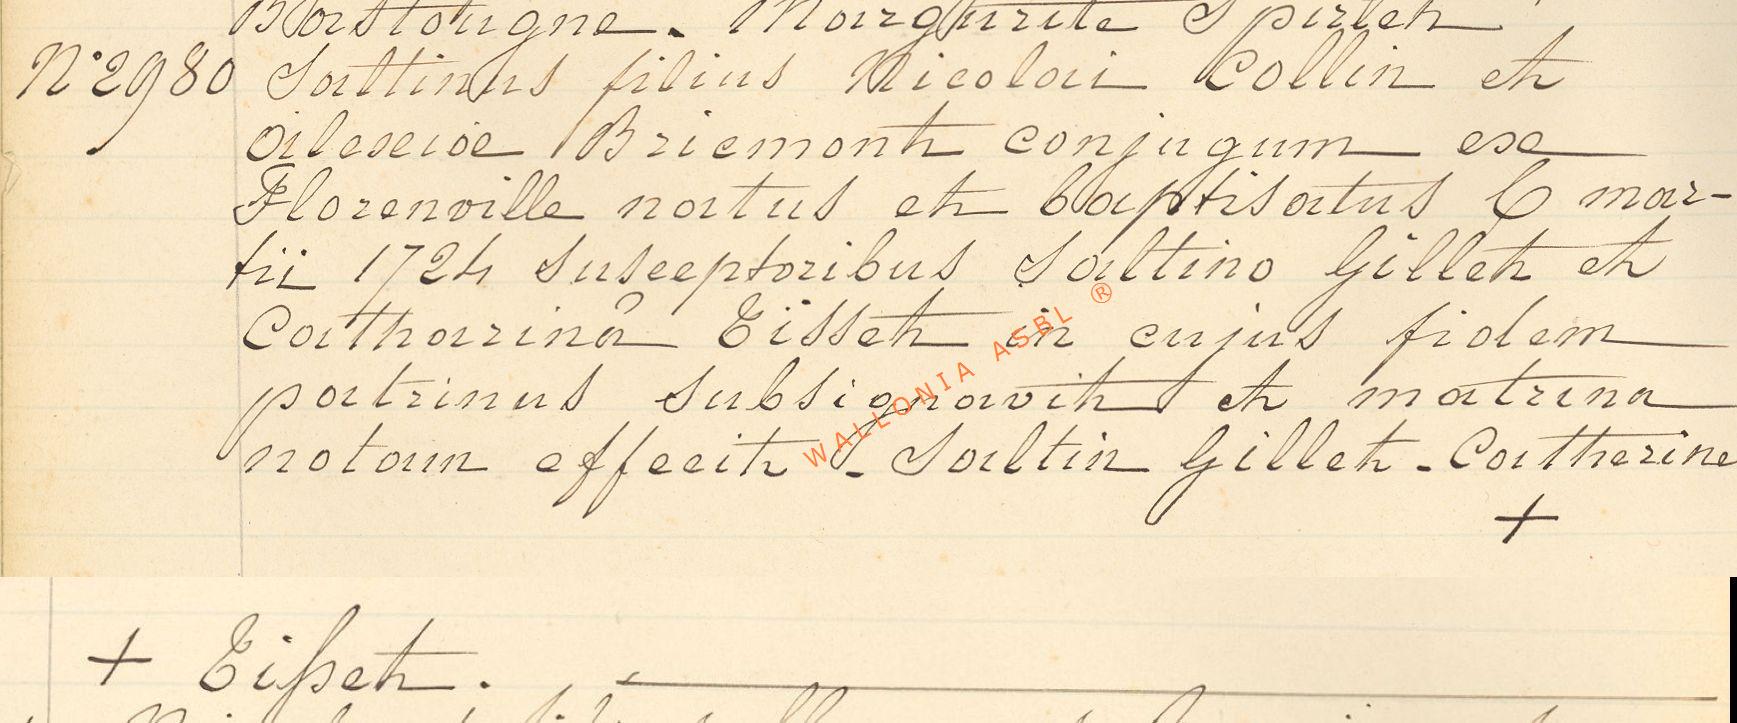 Bastougne. Marguerite Spirlet
N° 2980 Saltinus filius Nicolai Collin et
Alexiae Briemont conjugum ex
Florenville natus et baptisatus 6 mar-
tii 1724 susceptoribus Saltino Gillet et
Catharinâ Eisset in cujus fidem
patrinus subsignavit et matrina
notam effecit. Saltin Gillet - Catherine
+
+ Eißet.
WALLONIA ASBL ®